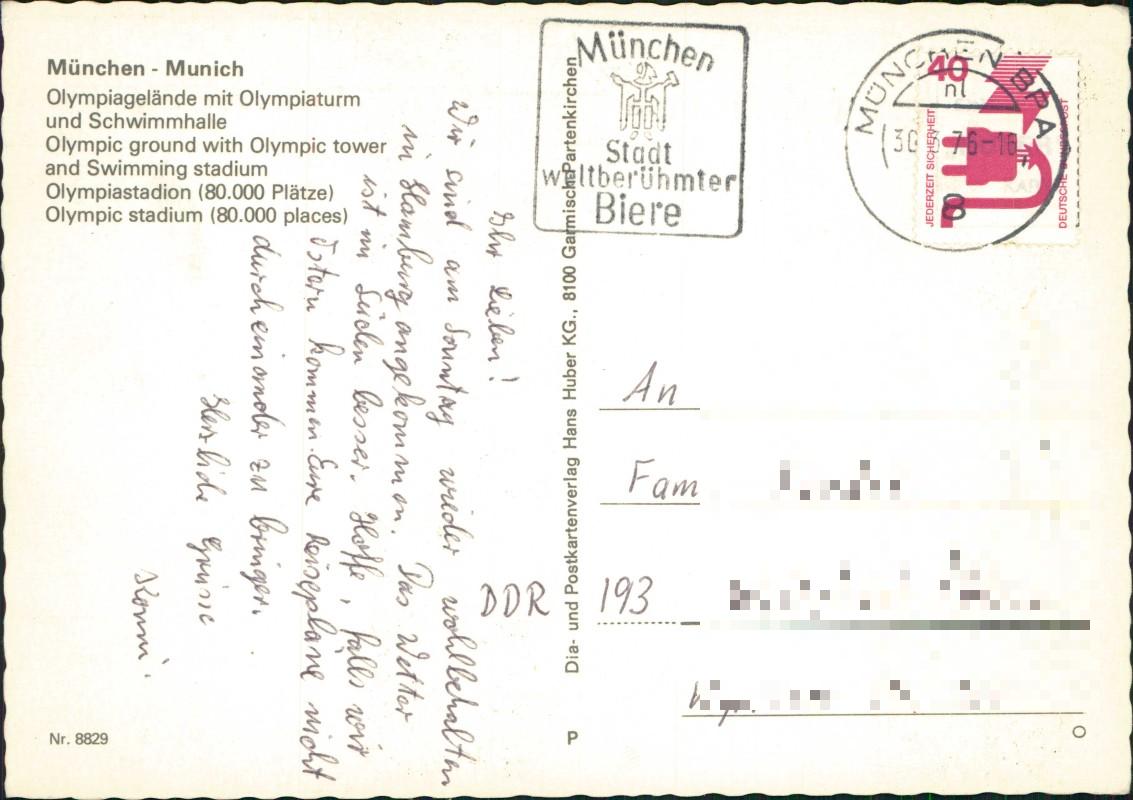 München - Munich
Olympiagelände mit Olympiaturm
und Schwimmhalle
Olympic ground with Olympic tower
and Swimming stadium
Olympiastadion (80.000 Plätze)
Olympic stadium (80.000 places)
Ihr Lieben!
Wir sind am Sonntag wieder wohlbehalten
in Hamburg angekommen. Das Wetter
ist im Süden besser. Hoffe, falls wir
Ostern kommen Eure Reisepläne nicht
durcheinander zu bringen.
Herzliche Grüsse
Konni.
Nr. 8829
Dia- und Postkartenverlag Hans Huber KG., 8100 Garmisch-Partenkirchen
P
München
Stadt
weltberühmter
Biere
MÜNCHEN BPA
nl
76-16
8
40
JEDERZEIT SICHERHEIT
DEUTSCHE BUNDESPOST
An
Fam
DDR 193
O